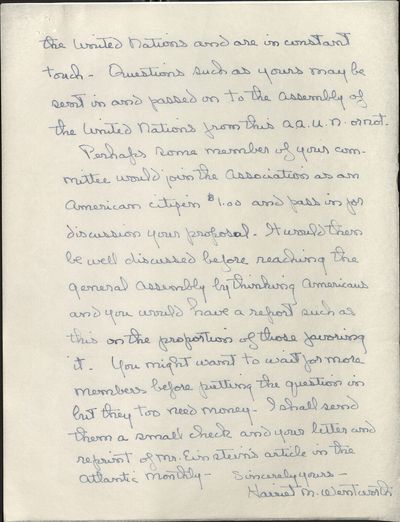 the United Nations and are in constant
touch - Questions such as yours may be
sent in and passed on to the assembly of
the United Nations from this a.a.U.N. or not.
Perhaps some member of your com-
mittee would join the Association as an
American citizen $1.00 and pass in for
discussion your proposal. It would then
be well discussed before reaching the
general assembly by thinking Americans
and you would have a report such as
this on the proportion of those favoring
it. You might want to wait for more
members before putting the question in
but they too need money - I shall send
them a small check and your letter and
reprint of Mr. Einstein's article in the
Atlantic Monthly - Sincerely yours -
Harriet M. Wentworth